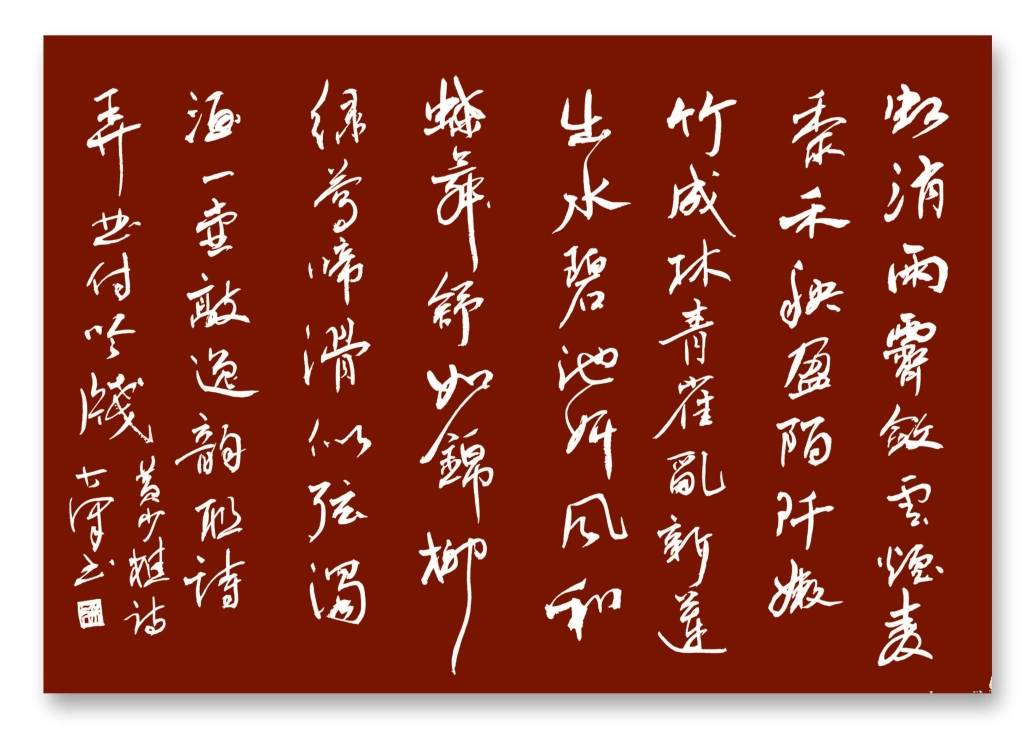 虹消雨霽斂雲煙麦
黍禾秧盈陌阡嫩
竹成林青雀亂新蓮
出水碧池妍风和
蝶舞舒如錦柳
绿莺啼滑似弦濁
酒一壺敲逸韵聊詩
弄曲付吟牋
黄少诗
书